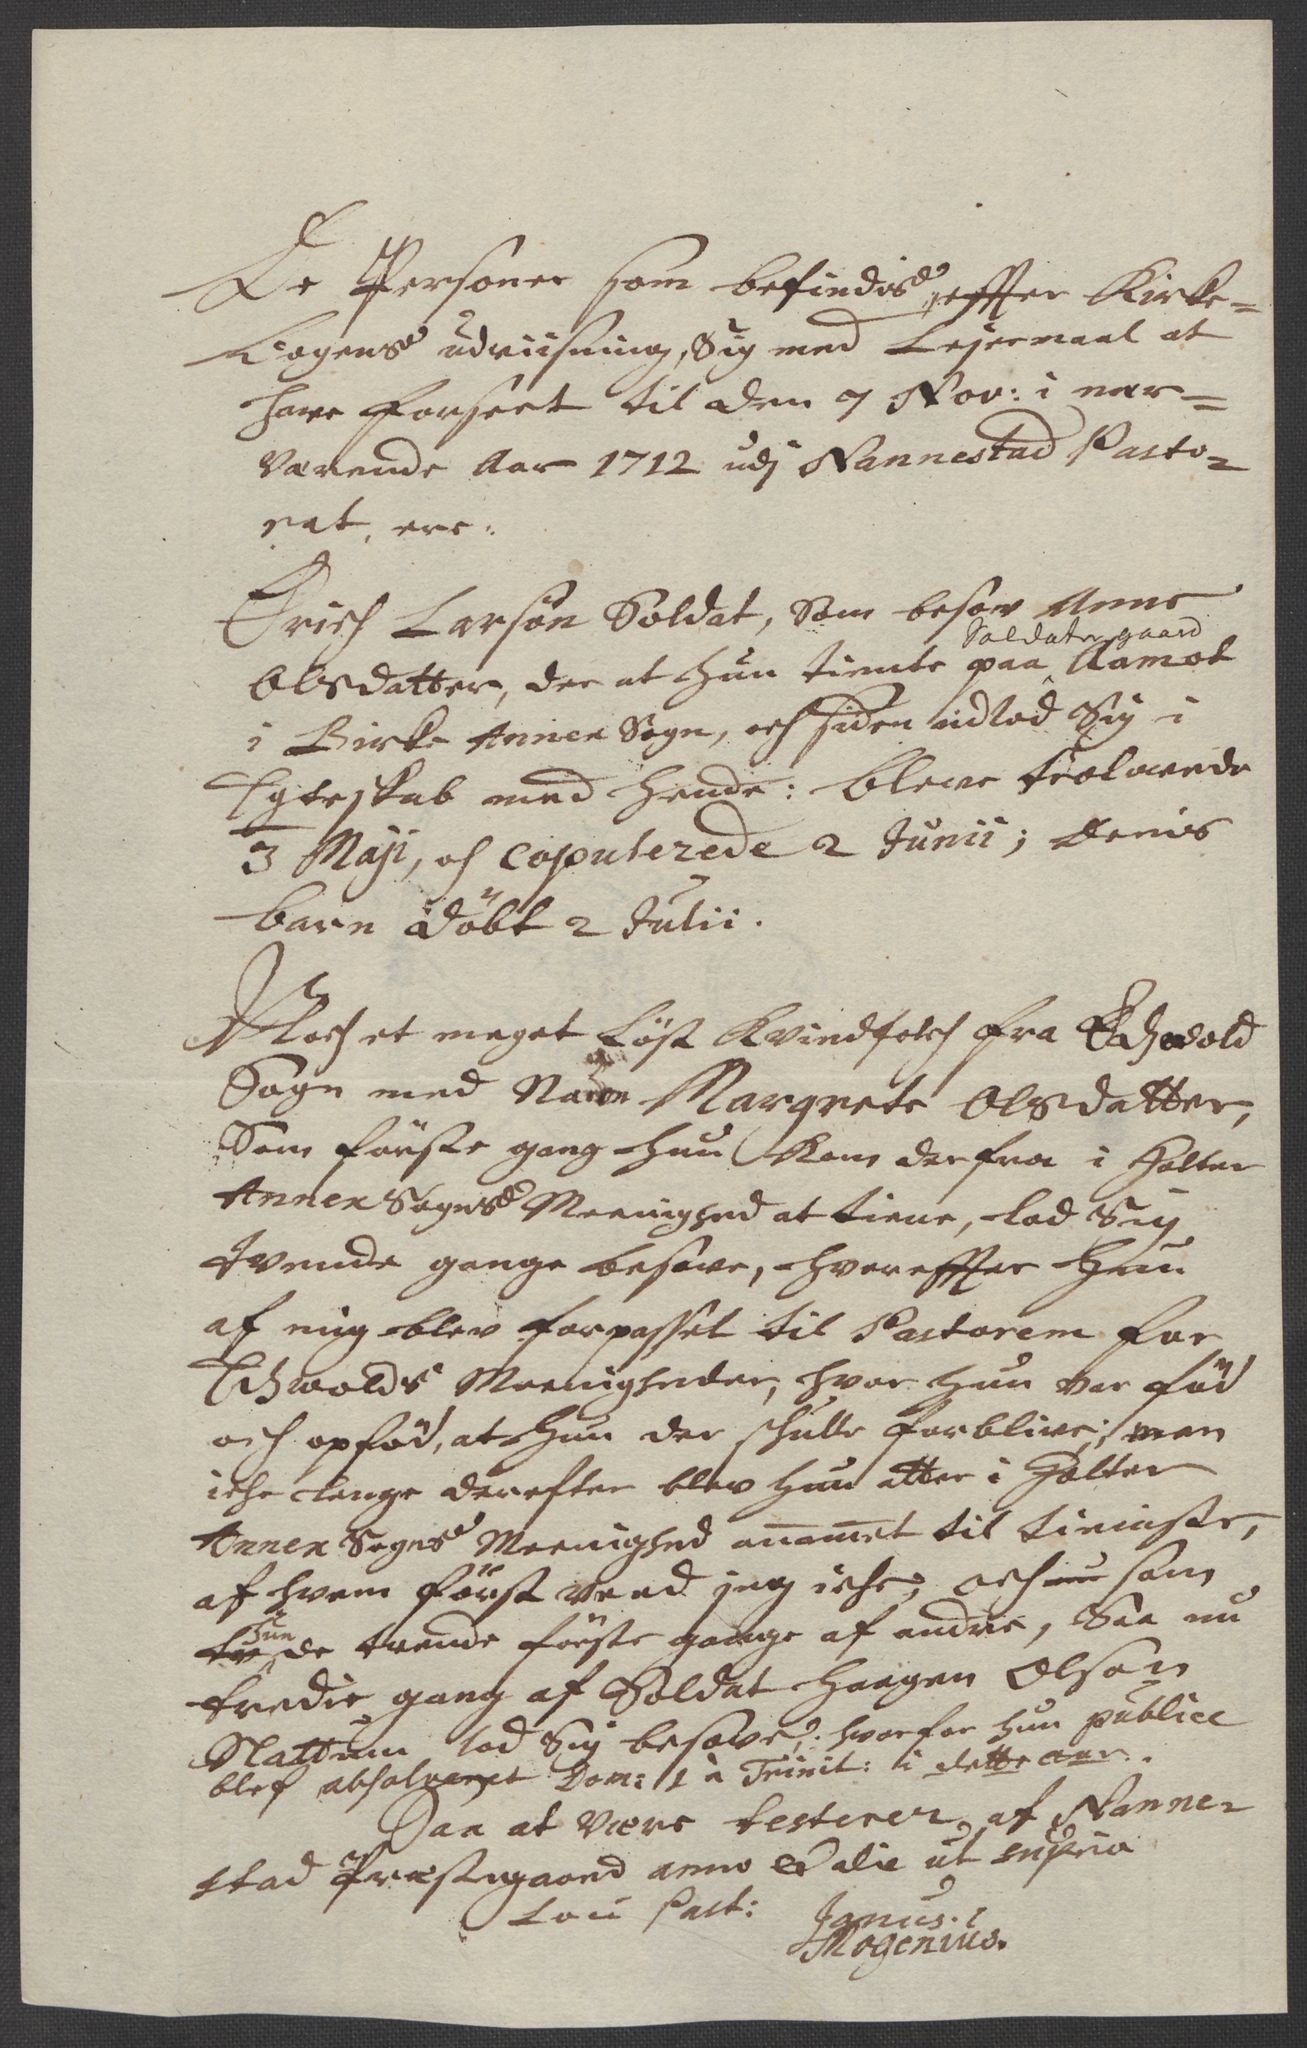 De Personer som befindis effter Kirke-
bogens udviisning, Sig med Lejermaal at
have forseet til den 7 Nov: i nær=
værende Aar 1712 udj Nannestad Pasto-
rat, ere:
Erich Larsøn Soldat, Som besov Anne
Soldater gaard
Olsdatter, der at hun tiente paa Aamot
i Birke Annex Sogn, och siden indlod Sig i
Egteskab med hende: bleve trolovede
3 Maji, och copulerede 2 Junii; Deris
barn döbt 2 Julii.
Noch et meget Löst Kvindfolch fra Edzvold
Sogn med Navn Margrete Olsdatter,
Som förste gang hun kom derfra i Holter
Annex Sogns Meenighed at tiene, lod Sig
tvende gange besove, hvereffter hun
af mig blev forpasset til Pastorem for
Edzvolds Meenigheder, hvor hun var föd
och opföd, at hun der skulle forblive; men
iche lenge derefter blev hun atter i Holter
Annex Sogns Meenighed anamet til tieniste,
af hvem först veed jeg iche, och som
hun
de tvende förste gange af andre, Saa nu
tredie gang af Soldat Haagen Olsøn
Nattum lod Sig besove, hvorfor hun publice
blef absolveret Dom: 1 à Trinit: i dette aar.
Saa at være testerer af Nanne-
stad Præstegaard anno & die ut supra
Loci Past: Janus
Mogenius.